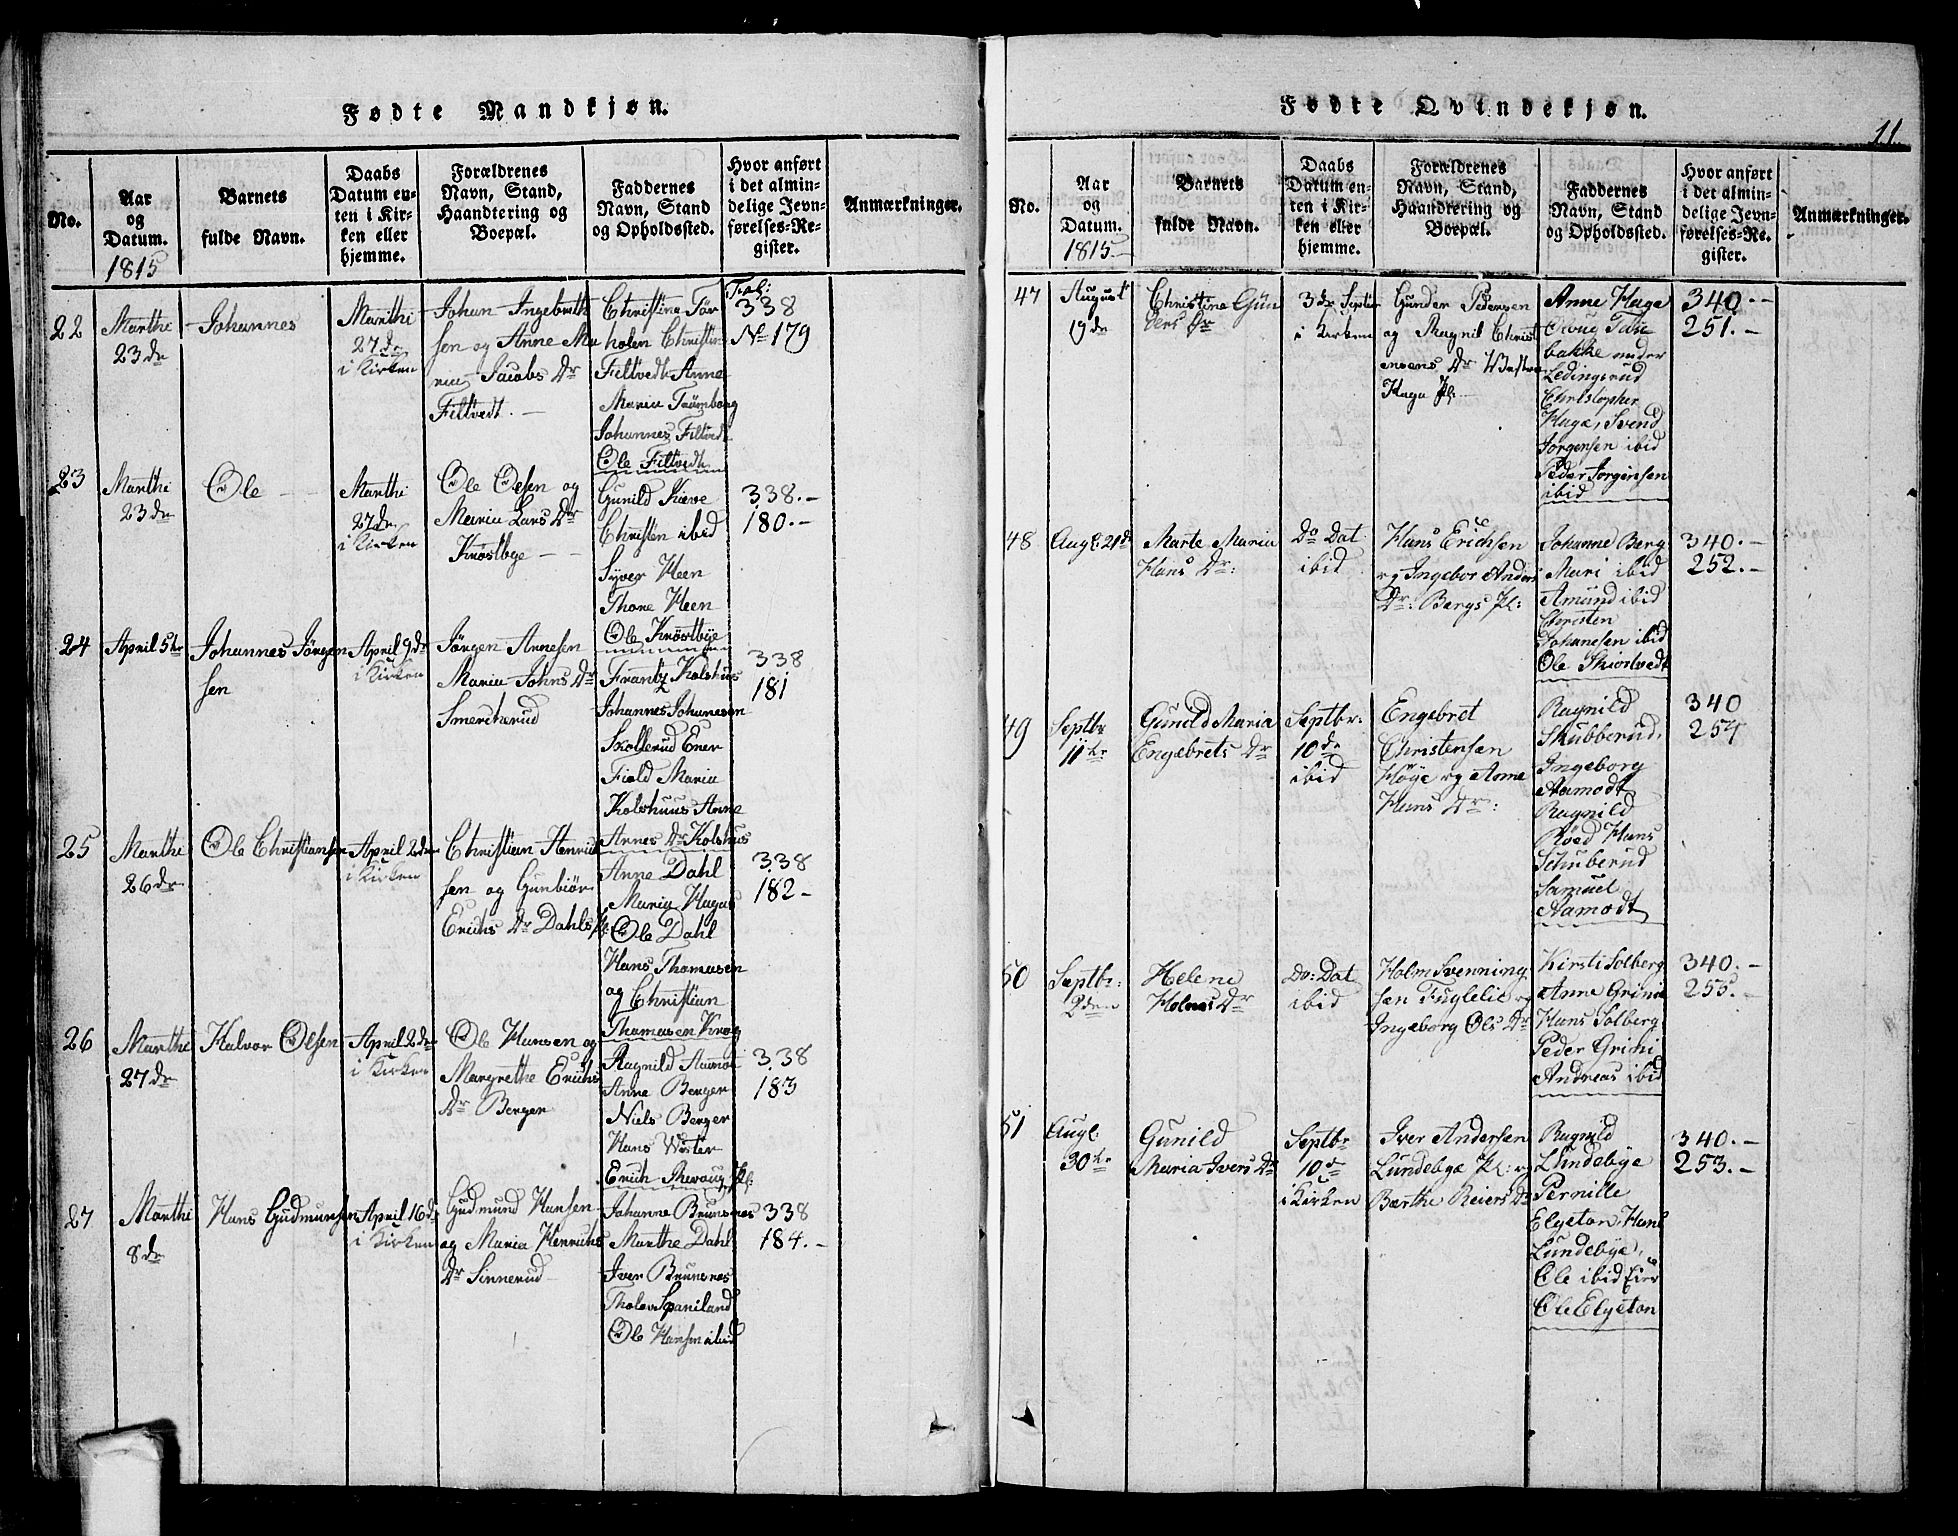 Fødte Mandkjøn.
No.
Aar
og
Datum.
1815
Barnets
fulde Navn.
Daabs
Datum en-
ten i Kir-
ken eller
hjemme.
Forældrenes
Navn, Stand,
Haandtering og
Boepæl.
Faddernes
Navn, Stand
og Opholdssted.
Hvor anført
i det almin-
delige Jevn-
førelses-Re-
gister.
Anmærkninger.
22
Marthi
23de
Johannes
Marthi
27de
i Kirken
Johan Ingebreth
sen og Anne Ma
ria Jacobs Dr
Filtvedt.
Christina Tør
holen Christin
Filtvedt Anne
Maria Trømborg
Johannes Filtvedt
Ole Filtvedt
Fol:
338
No 179
23
Marthi
23de
Ole
Marthi
27de
i Kirken
Ole Olsen og
Maria Lars Dr
Krostbye
Gunild Kieve
Christen ibid
Syver Heen
Thone Heen
Ole Krostbye
338.-
180.-
24
April 5te
Johannes Jørgen
sen
April 9de
i Kirken
Jørgen Annesen
Maria Johns Dr
Smertherud
Frantz Kolshus
Johannes Johanesen
Skollerud Ener
Field Maria
Kolshuus Anne
Annes Dr Kolshus
338
181
25
Marthi
26de
Ole Christiansen
April 2de
i Kirken
Christian Henrich
sen og Gunbiør
Erichs Dr Dahls Pl.
Anne Dahl
Maria Hagas
Ole Dahl
Hans Thomasen
og Christian
Thomasen Krog
338
182-
26
Marthi
27de
Halvor Olsen
April 2de
i Kirken
Ole Hansen og
Margrethe Erichs
Dr Berger
Ragnild Aamot
Anne Berger
Niels Berger
Hans Wister
338
183
27
Marthi
8de
Hans Gudmunsen
April 16de
i Kirken
Gudmund Hansen
og Maria Henrichs
Dr Sinnerud
Johanne Brunsnes
Marthe Dahl
Iver Brunsnes
Tholov Spaniland
Ole Hansen ibid
338
184.-
Fødte Qvindekjøn.
11.
No.
Aar
og
Datum.
1815
Barnets
fulde Navn.
Daabs
Datum en-
ten i Kir-
ken eller
hjemme.
Forældrenes
Navn, Stand,
Haandtering og
Boepæl.
Faddernes
Navn, Stand
og Opholdssted.
Hvor anført
i det almin-
delige Jevn-
førelses-Re-
gister.
Anmærkninger.
47
August
19de
Christine Gun
ders Dr
3de Septbr
i Kirken
Gunder Pedersen
og Ragnil Christ
ensens Dr Westre
Haga Pl.
Anne Haga
bakke under
Ledingsrud
Christopher
Haga, Svend
Jørgensen ibid
Peder Jørgensen
ibid
340.-
251.-
48
Augl: 21de
Marte Maria
Hans Dr:
Do Dat
ibid
Hans Erichsen
og Ingebor Anders
Dr: Bergs Pl:
Johanne Berg
Mari ibid
Amund ibid
Christen
Johanesen ibid
Ole Skiortvedt
340.-
252.-
49
Septbr
11te
Gunild Maria
Engebrets Dr
Septbr:
10de
ibid
Engebret
Christensen
Høye og Anne
Hans Dr:
Ragnild
Skubberud,
Ingeborg
Aamodt
Ragnild
Røed Hans
Schuberud
Samuel
Aamodt
340
254
50
Septbr:
2den
Helene
Holms Dr
Do: Dat
ibid
Holm Svenning
sen Fuglelie og
Ingeborg Ols Dr
Kirsti Solberg
Anne Grimi
Hans Solberg
Peder Grimi
Andreas ibid
340.-
255.-
51
Augl:
30te
Gunild
Maria Ivers Dr
Septbr
10de
i Kirken
Iver Andersen
Lundebye Pl: og
Barthe Reiers Dr
Ragnild
Lundebye
Pernille
Elgeton, Hans
Lundebye,
Ole ibid Eier
Ole Elgeton
340.-
253.-